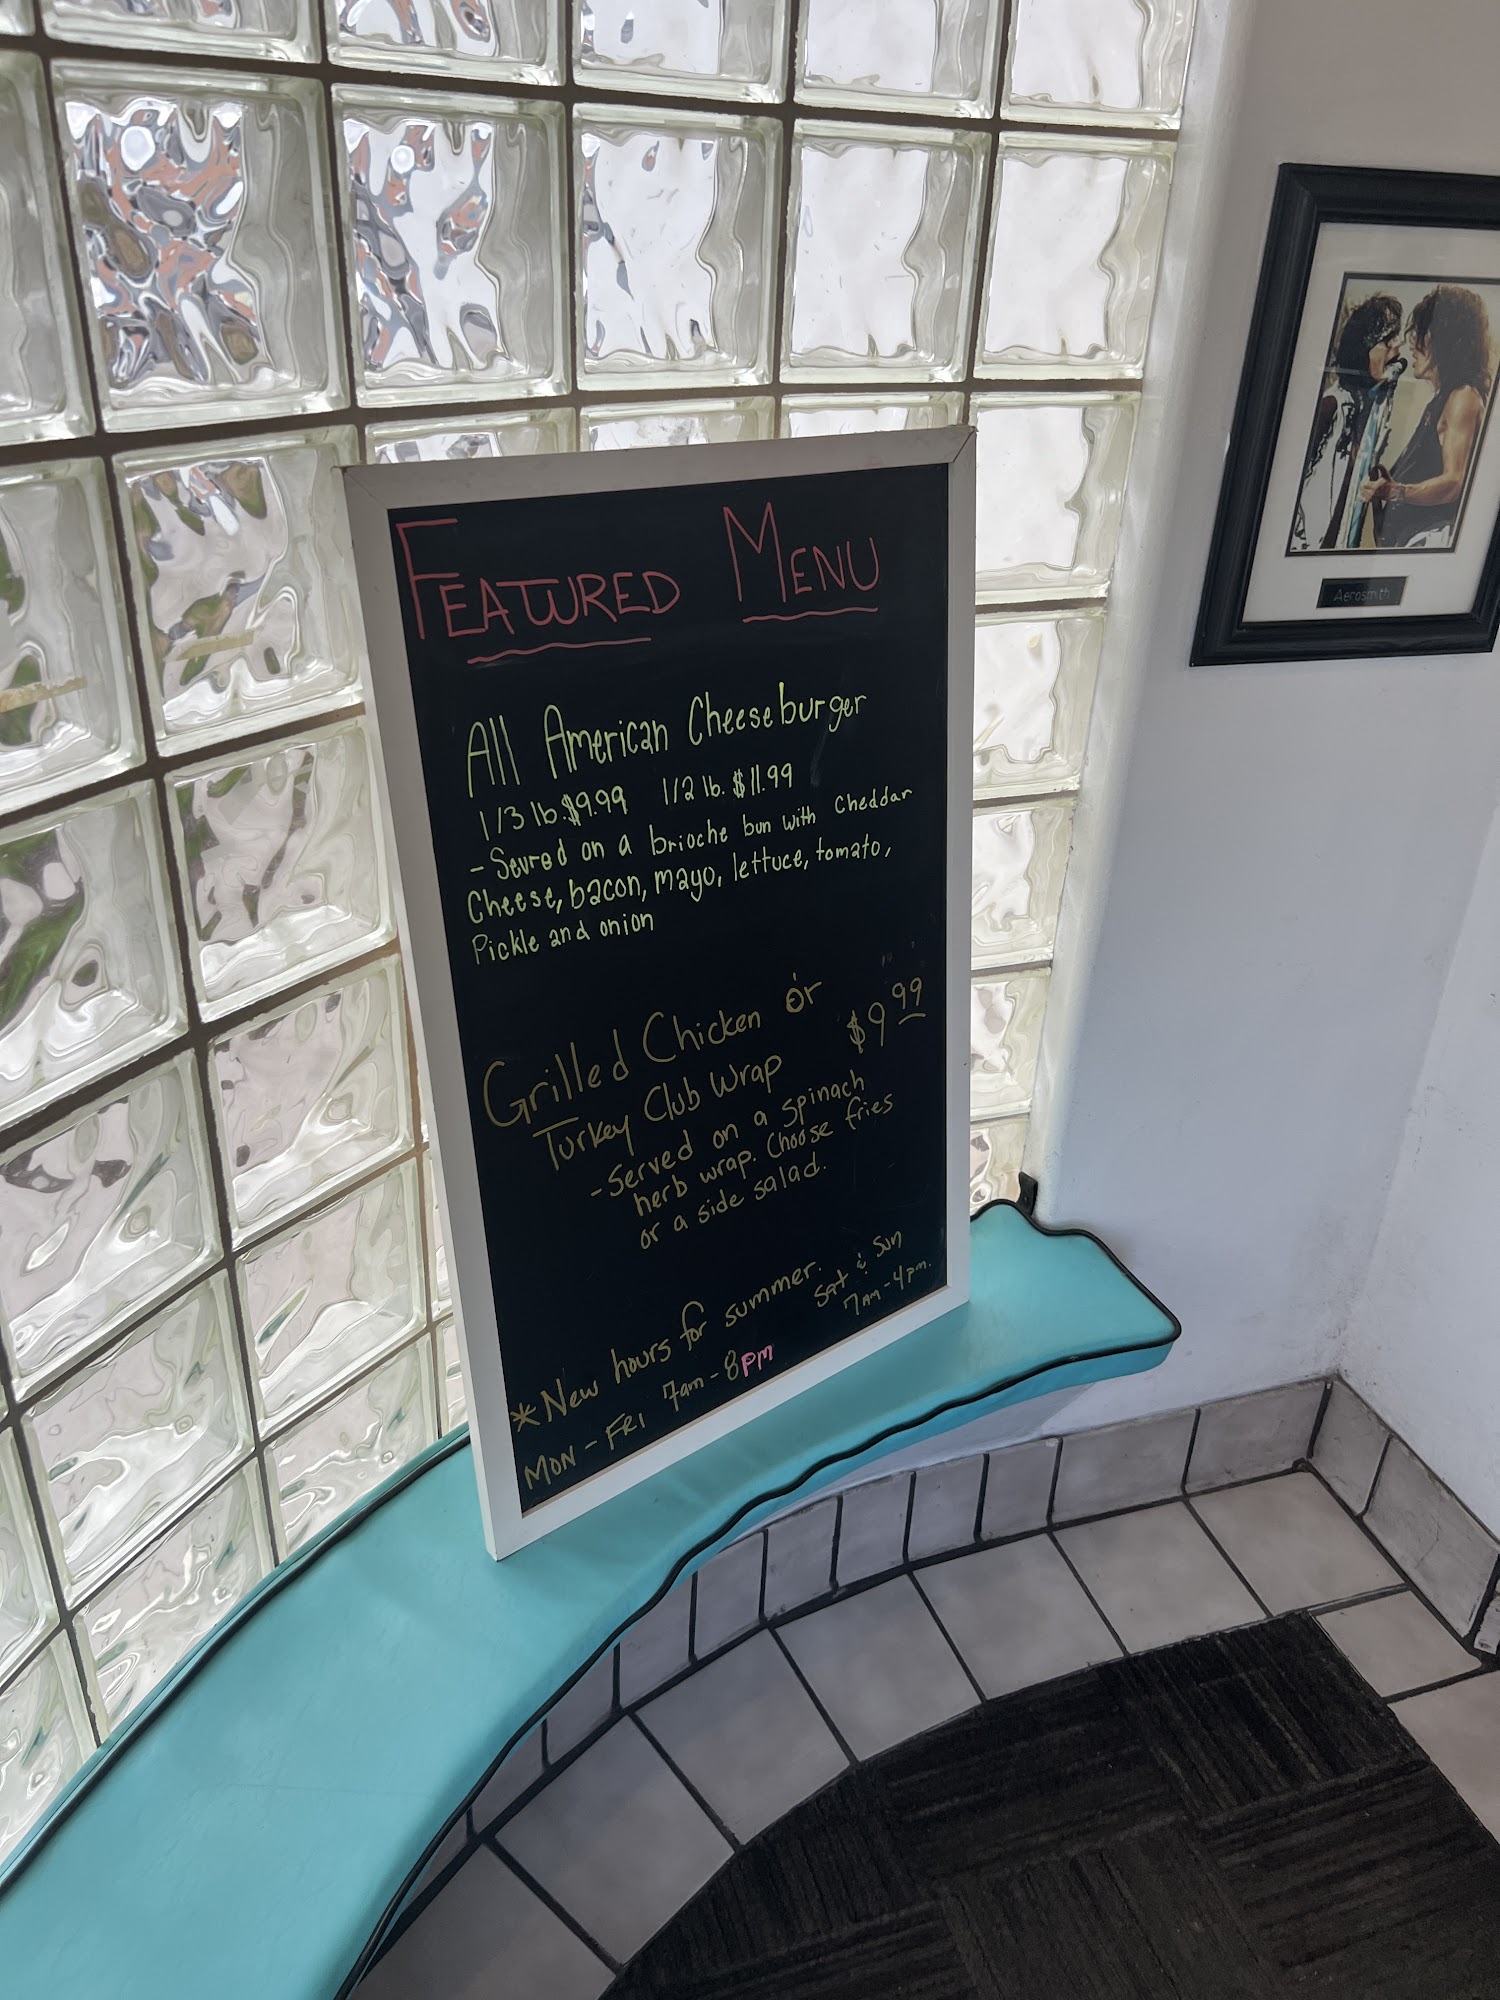 FEATURED MENU
All American Cheeseburger
1/3 lb. $9.99 1/2 lb. $11.99
- Sevred on a brioche bun with Cheddar
Cheese, bacon, mayo, lettuce, tomato,
Pickle and onion
Grilled Chicken or
Turkey Club Wrap $9 99
- Served on a spinach
herb wrap. Choose fries
or a side salad.
*New hours for summer.
MON - FRI 7am - 8pm
Sat & Sun
7AM - 4pm.
Aerosmith